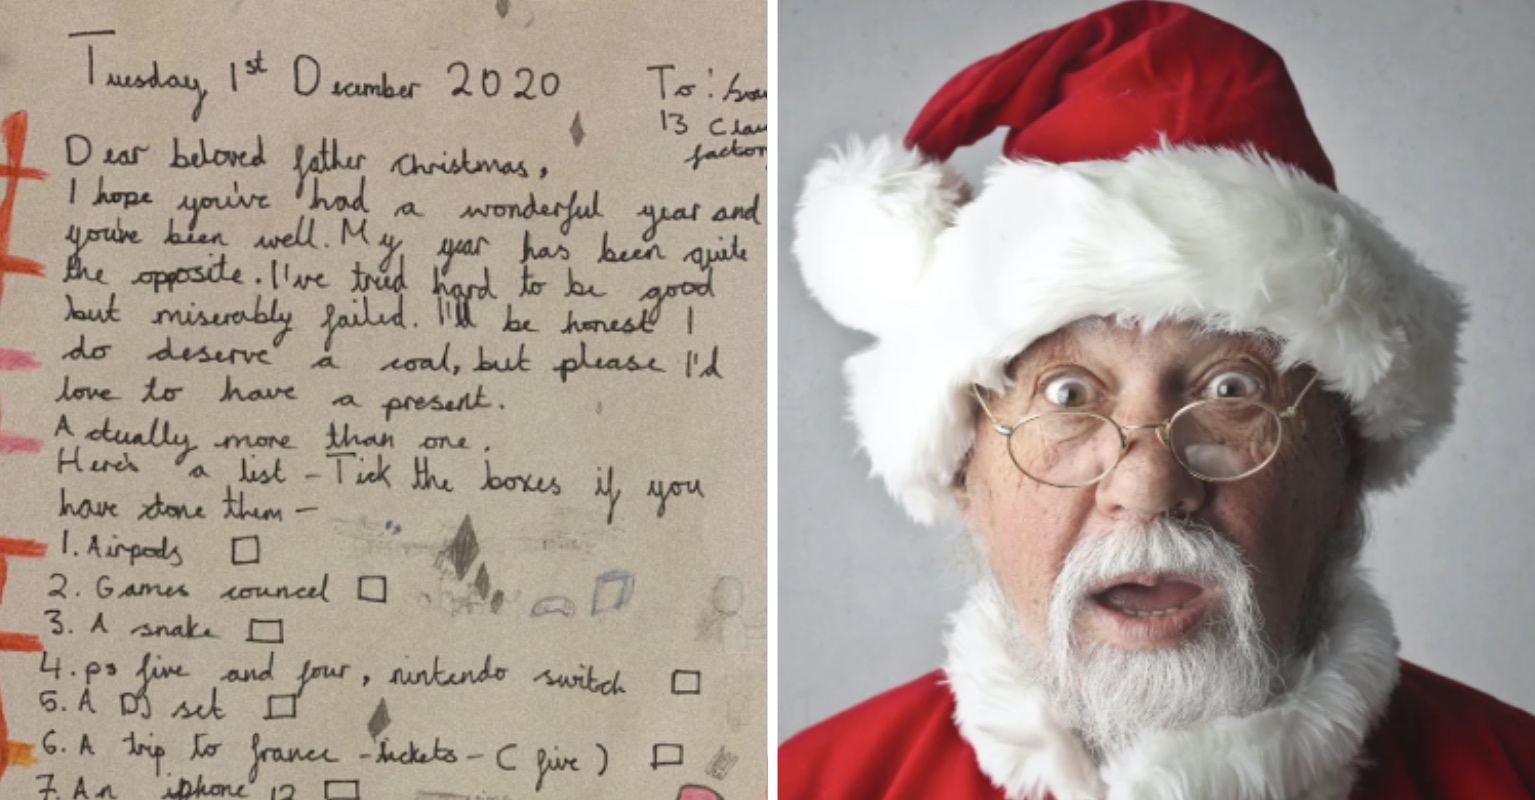 Tuesday 1st December 2020
To:
13
Dear beloved father christmas,
I hope you've had a wonderful year and
you've been well. My year has been quite
the opposite. I've tried hard to be good
but miserably failed. I'll be honest I
do deserve a coal, but please I'd
love to have a present.
Actually more than one.
Here's a list - Tick the boxes if you
have done them -
1. Airpods
2. Games councel
3. A snake
4. ps five and four, nintendo switch
5. A DJ set
6. A trip to france - tickets - ( five )
7. An iphone 12